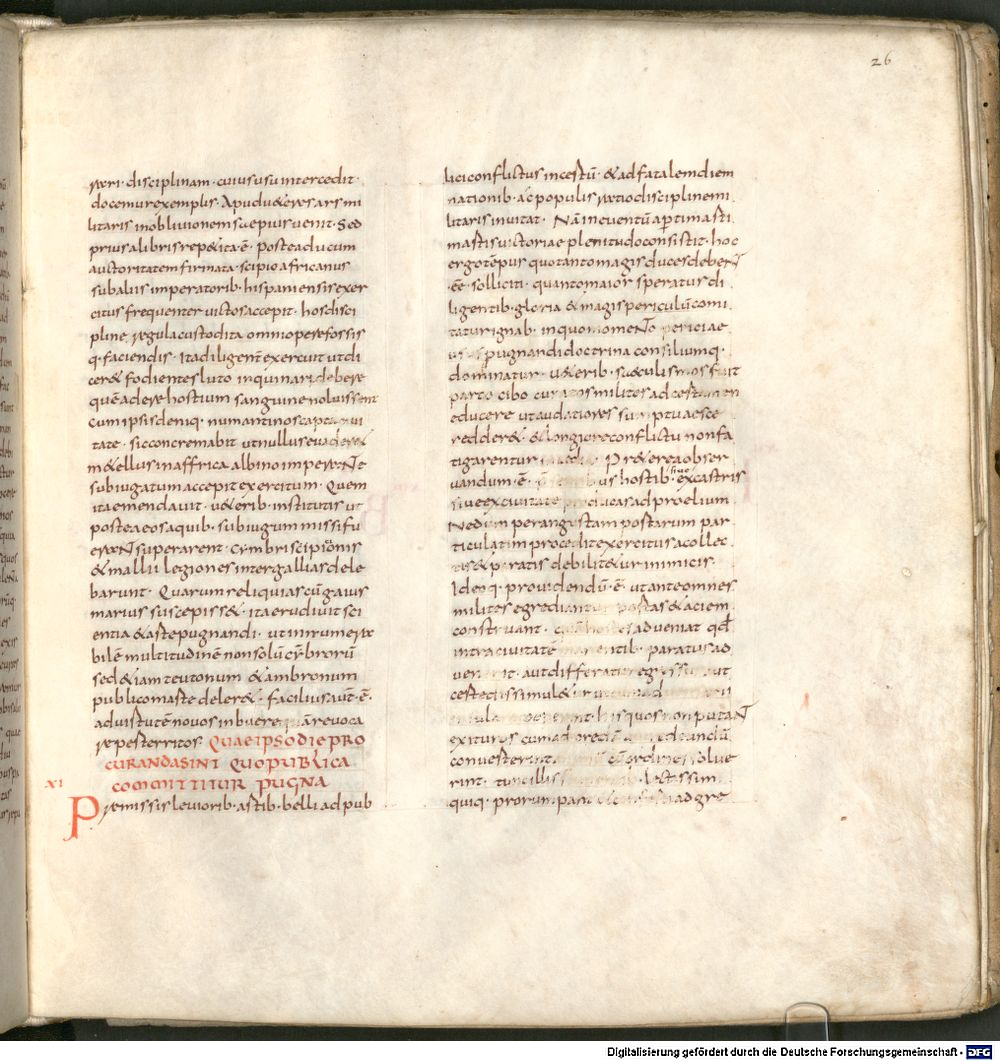 26
rari · disciplinam · cuius usu intercedit ·
docemur exemplis · Apud u&eres ars mi
litaris in obliuionem saepius uenit · Sed
prius a libris rep&ita ē · postea ducum
auctoritatem firmata · scipio africanus
sub aliis imperatorib · hispanienses exer
citus frequenter uictos accepit · hos disci
pline · regula custodita omni opere fossis
q · faciendis · ita diligent exercuit ut di
cer& fodientes luto inquinari debere
quē adere hostium sanguine noluissent
cum ipsis deniq · numantinos capta ciui
tate · sic concremabit ut nullus euader&
m&ellus in affrica albino imperante
subiugatum accepit exercitum · Quem
ita emendauit · u&erib · institutis ut
postea eos a quib · sub iugum missi fu
erant superarent · Cymbri scipionis
& mallii legiones inter gallias dele
barunt · Quarum reliquias cū gaius
marius suscepiss& · ita erudiuit sci
entia & arte pugnandi · ut innumera
bilē multitudinē non solū cymbrorū
sed &iam teutonum & ambronum
publico marte deler& · facilius aūt · ē ·
ad uirtutē nouos inbuere quā reuoca
re perterritos QUAE IPSO DIE PRO
CURANDA SINT QUO PUBLICA
XI COMMITTITUR PUGNA
Praemissis leuiorib · artib · belli ad pub
lici conflictus incertū · & ad fatalem diem
nationib · ac populis ratio discipline mi
litaris inuitat · Nā in euentū aperti marti
martis uictoriae plenitudo consistit · hoc
ergo tēpus quo tanto magis duces deben
· ēē · solliciti · quanto maior speratur di
ligentib · gloria & magis periculū comi
tatur ignab · in quo momento periciae
usus pugnandi doctrina consiliumq ·
dominatur · u&erib · saeculis mos fuit
parto cibo curatos milites ad certamen
educere ut audatiores sumptu aesce
redder& · & longiore conflictu non fa
tigarentur inedia · Pr&erea obser
uandum · ē · us hostib · siue ex castris
siue ex ciuitate producas ad proelium
Ne dum per angustam portarum par
ticulatim procedit exercitus a collec
tis & p · ratis debilit&ur inimicis ·
Idenq · prouidendū · ē · ut ante omnes
milites egrediantur portas & aciem
construant · quā hostes adueniat qd
intra ciuitatē manentib · paratus ad
uenerit · aut differatur egressus aut
certe dissimul&ur
his quos non putant
exituros cum ad
conuesterint ordines solue
rint · tunc illis · lectissim
quiq · prorumpant ad gre